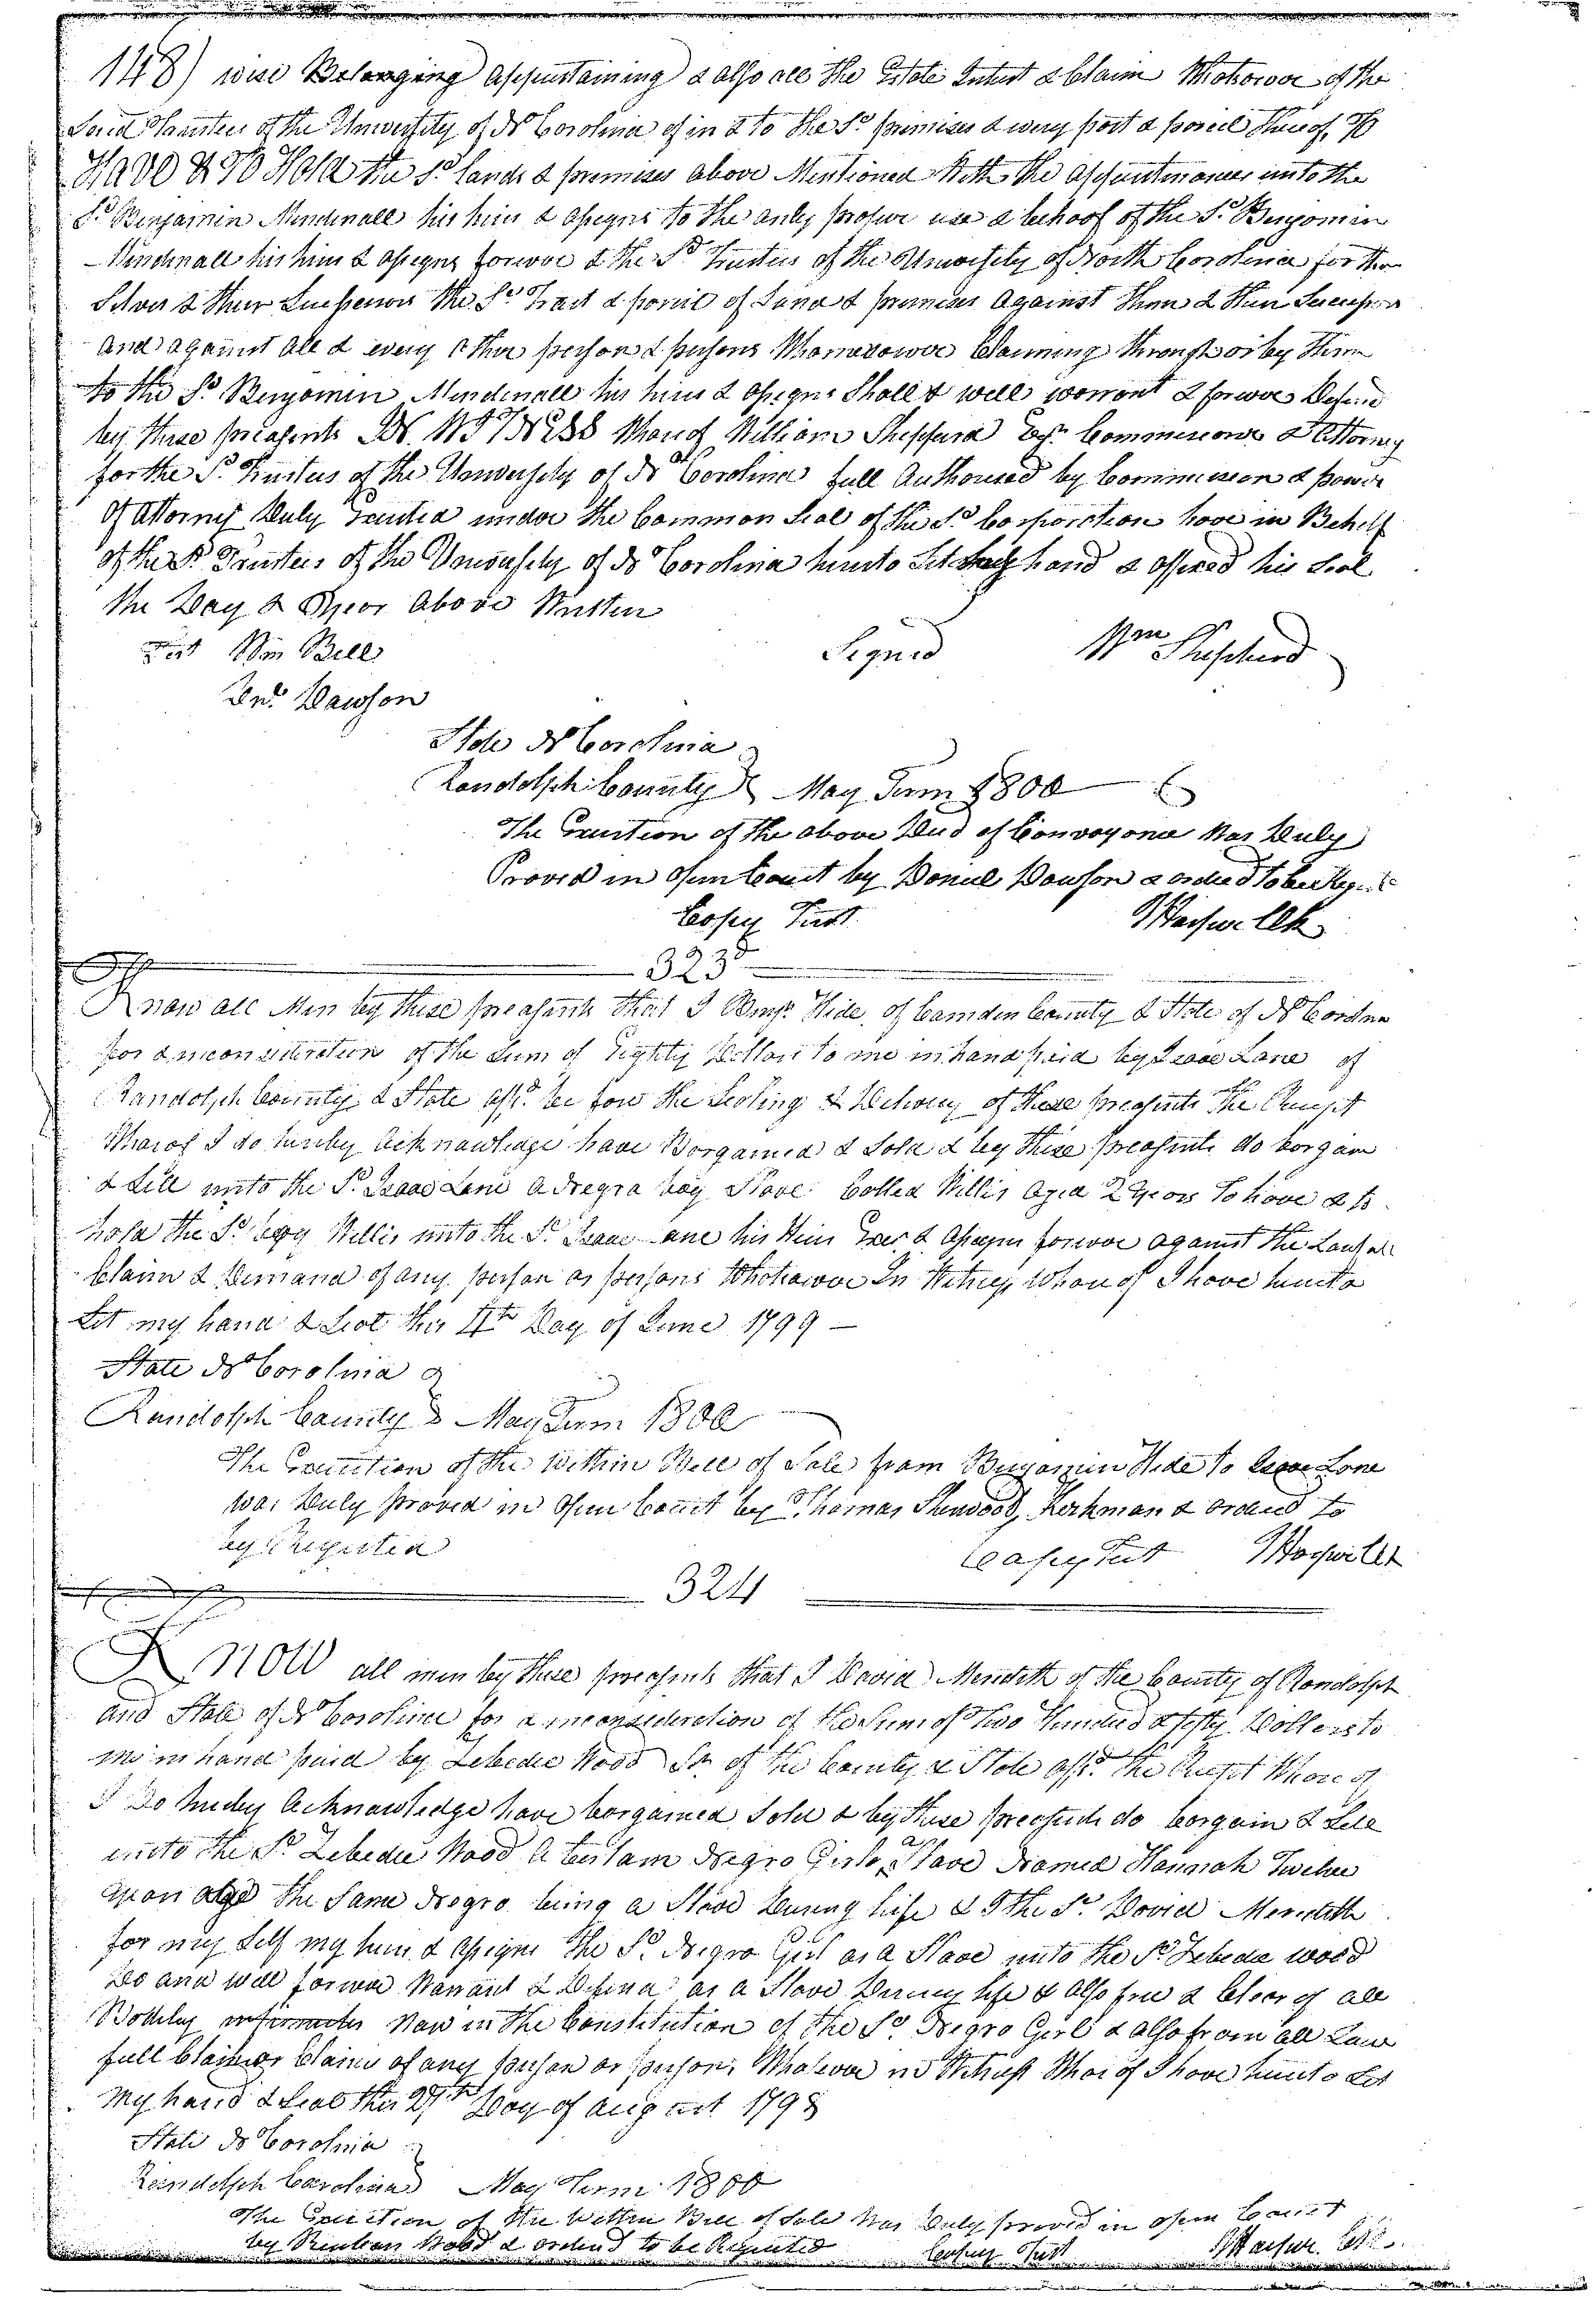 148) wise Belonging Appertaining & also all the Estate Interest & Claim Whatsoever of the
Said Trustees of the University of No Carolina of in & to the Sd premises & every part & parcel thereof, To
Have & To Hold the Sd Lands & premises above Mentioned With the Appurtenances unto the
Sd Benjamin Mendenall his heirs & Assigns to the only proper use & behoof of the Sd Benjamin
Mendenall his heirs & Assigns forever & the Sd Trustees of the University of North Carolina for them
Selves & their Successors the Sd Tract & parcel of Land & premises Against them & their Successors
and against all & every other person & persons Whomsoever Claiming through or by them
to the Sd Benjamin Mendenall his heirs & Assigns Shall & will warrant & forever Defend
by these preasents In Witness Whereof William Sheppard Esqr Commissioner & Attorney
for the Sd Trustees of the University of No Carolina full Authorised by Commission & power
of Attorney Duly Executed under the Common Seal of the Sd Corporation have in Behalf
of the Sd Trustees of the University of No Carolina hereto Set his hand & affixed his Seal
the Day & Year Above Written
Test Wm Bell Signed Wm Sheppard
Dn. Dawson
State No Carolina
Randolph County May Term 1800
The Execution of the above Deed of Conveyance Was Duly
Proved in Open Court by Daniel Dawson & ordered to be Regist
Copy Test Harper Clk
323
Know all Men by these preasents that I Benjn Hide, of Camden County & State of No Carolina
for & in consideration of the Sum of Eighty Dollars to me in hand paid by Isaac Lane of
Randolph County & State Afsd. before the Sealing & Delivery of these preasents the Receipt
Whereof I do hereby Acknowledge have Bargained & Sold & by these preasents do bargain
& Sell unto the Sd Isaac Lane a Negro boy Slave Called Willis Aged 2 Years To have & to
hold the Sd boy Willis unto the Sd Isaac Lane his Heirs Exer & Assigns forever against the Lawful
Claim & Demand of any person or persons Whatsoever In Witness Whereof I have hereto
Set my hand & Seal this 11th Day of June 1799
State No Carolina
Randolph County May Term 1800
The Execution of the within Bill of Sale from Benjamin Hide to Isaac Lane
was Duly proved in Open Court by Thomas Kirkman & ordered to
by Registed Copy Test Harper Clk
324
Know all men by these preasents that I David Merideth of the County of Randolph
and State of No Carolina for & in consideration of the Sum of Two Hundred & fifty Dollers to
me in hand paid by Zebedee Wood Sr of the County & State Afsd. the Receipt Whereof
I Do hereby Acknowledge have bargained Sold & by these preasents do bargain & Sell
unto the Sd Zebedee Wood A Certain Negro Girl a Slave Named Hannah Twelve
Years Age the Same Negro being a Slave During life & I the Sd David Merideth
for my Self my heirs & Assigns the Sd Negro Girl as a Slave unto the Sd Zebedee Wood
Do and will forever Warrant & Defend as a Slave During life & Also free & Clear of all
Bodily infirmities Now in the Constitution of the Sd Negro Girl & Also from all Law
full Claim or Claims of any person or persons Whatever in Witness Whereof I have hereto Set
My hand & Seal this 27th Day of August 1798
State No Carolina
Randolph Carolina May Term 1800
The Execution of the Within Bill of Sale Was Duly proved in open Court
by Reuben Wood & ordered to be Registed Copy Test Harper Clk.